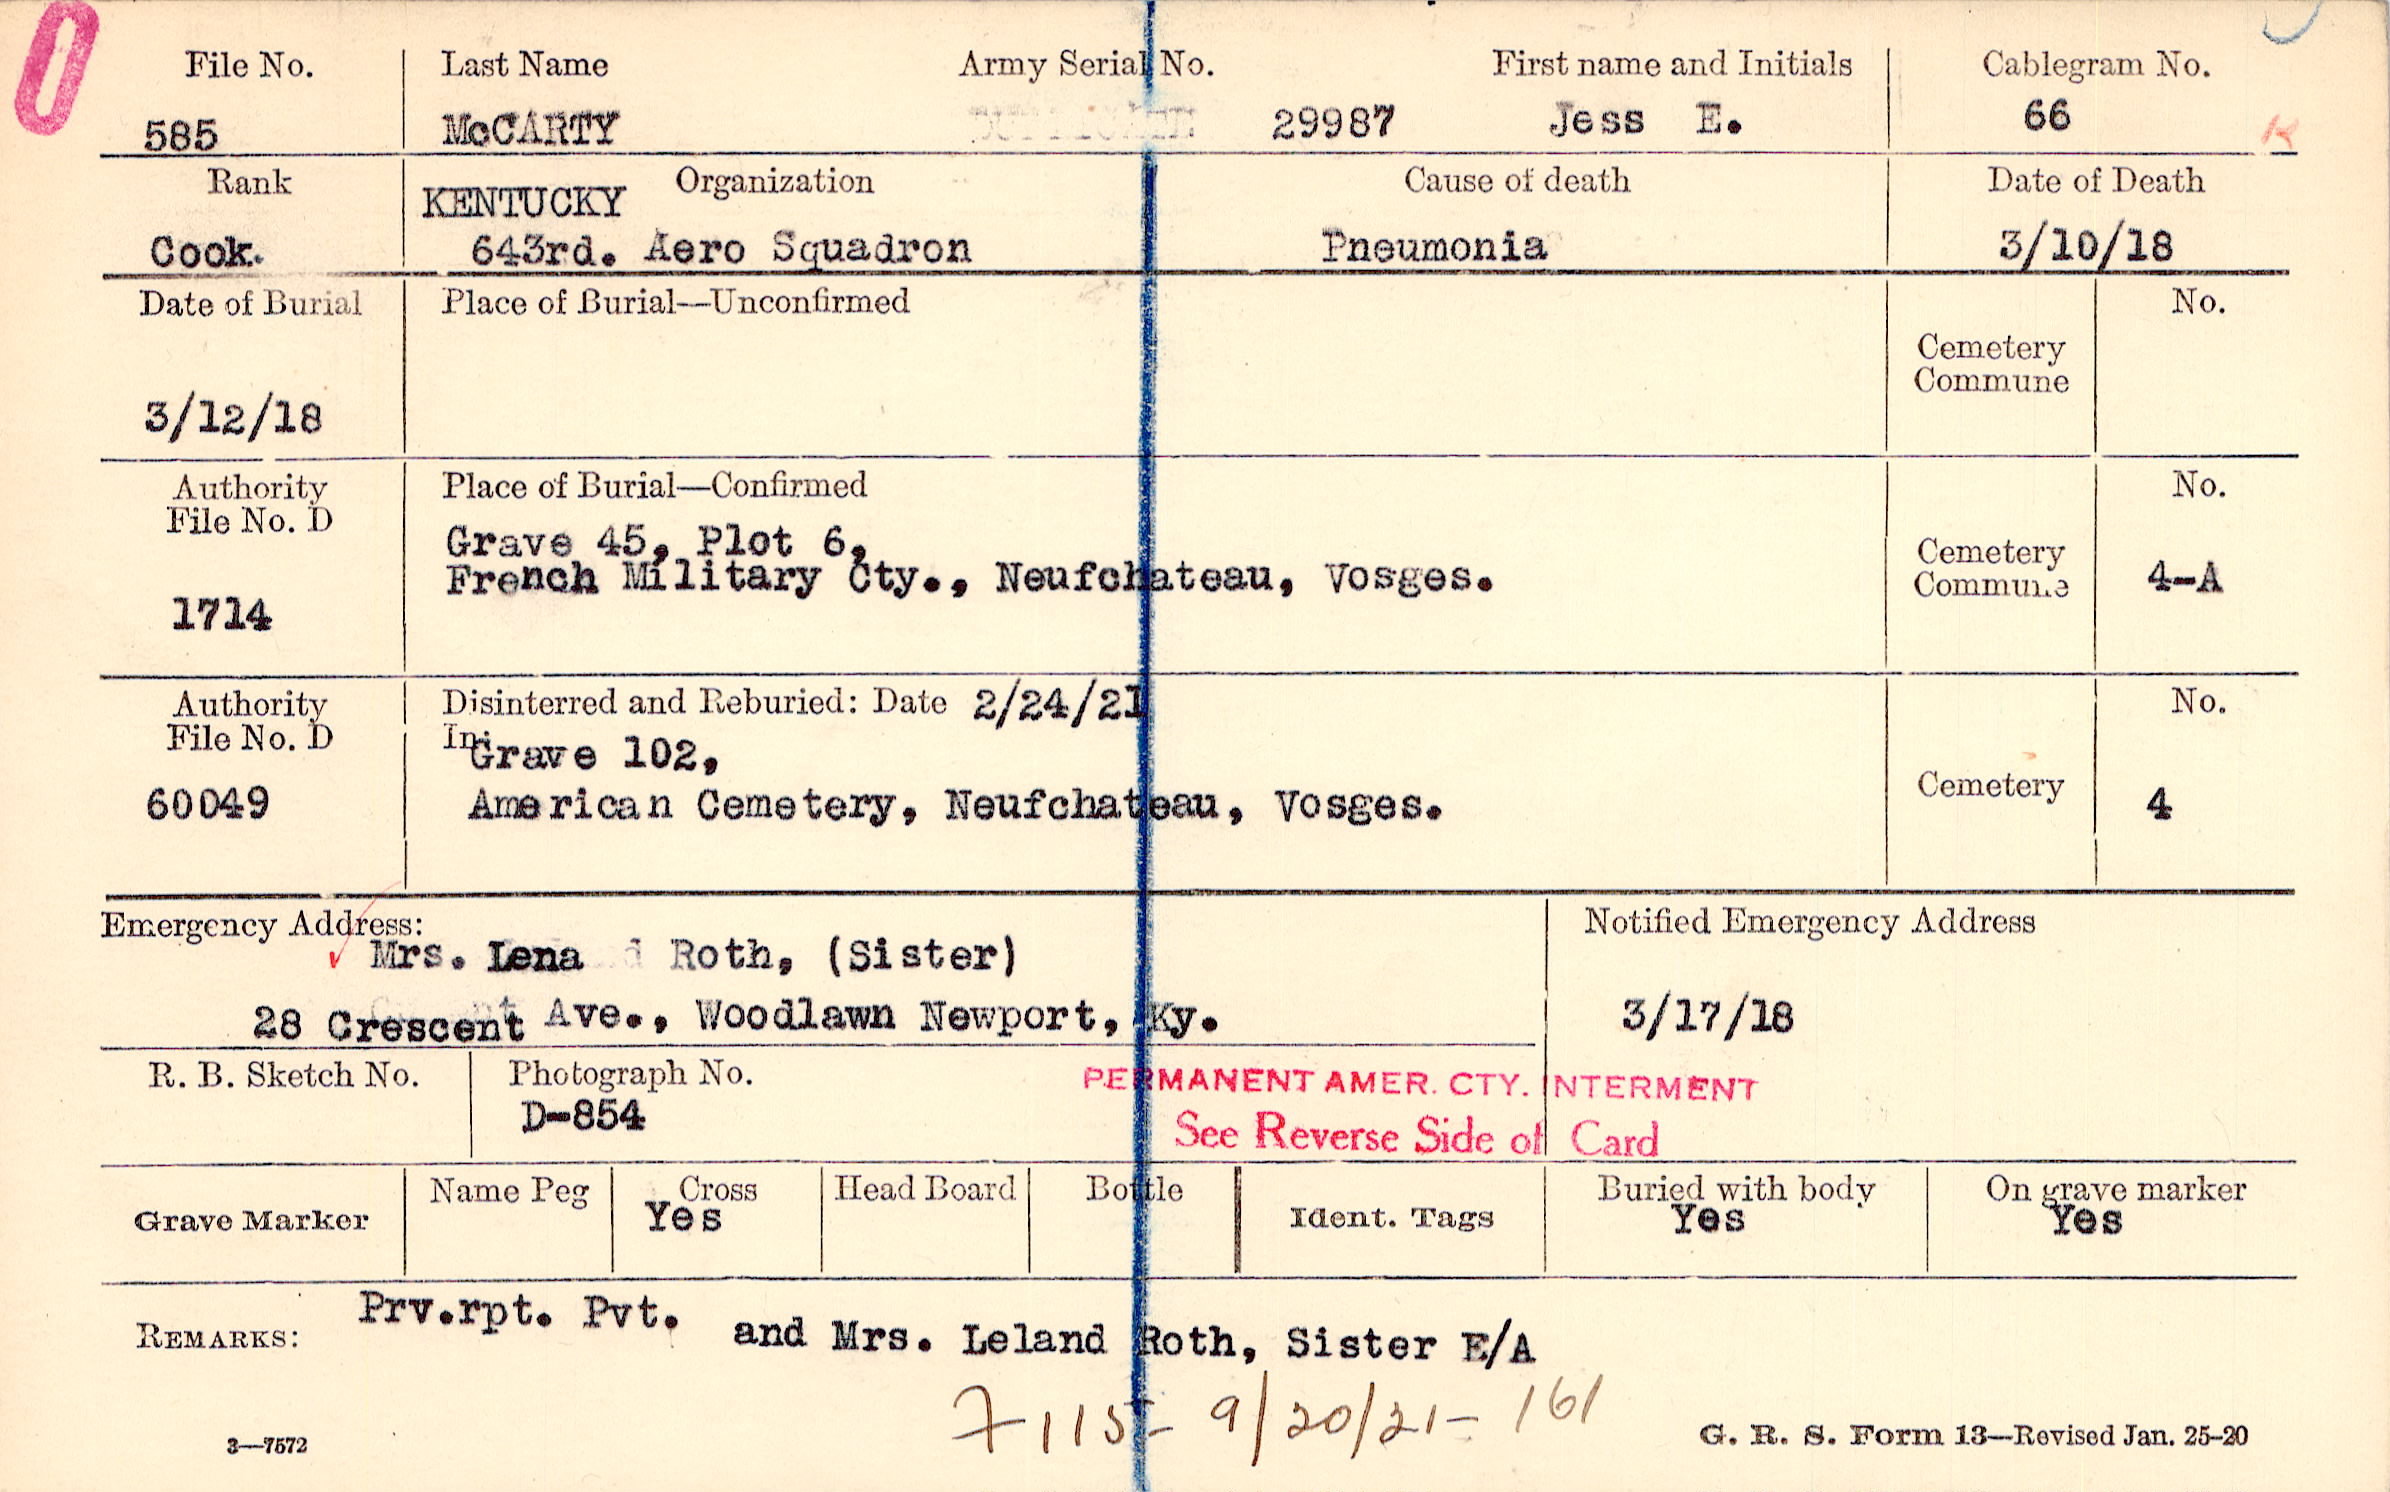 File No. Last Name Army Serial No. First name and Initials Cablegram No.
585 McCARTY 29987 Jess E. 66
Rank Organization Cause of death Date of Death
KENTUCKY
Cook. 643rd. Aero Squadron Pneumonia 3/10/18
Date of Burial Place of Burial—Unconfirmed No.
Cemetery
Commune
3/12/18
Authority Place of Burial—Confirmed No.
File No. D
Grave 45, Plot 6, Cemetery
French Military Cty., Neufchateau, Vosges. Commune 4-A
1714
Authority Disinterred and Reburied: Date 2/24/21 No.
File No. D In:
Grave 102,
Cemetery
60049 American Cemetery, Neufchateau, Vosges. 4
Emergency Address: Notified Emergency Address
Mrs. Lena Roth, (Sister)
28 Crescent Ave., Woodlawn Newport, Ky. 3/17/18
R. B. Sketch No. Photograph No. PERMANENT AMER. CTY. INTERMENT
D-854 See Reverse Side of Card
Name Peg Cross Head Board Bottle Buried with body On grave marker
Grave Marker Yes Ident. Tags Yes Yes
Prv.rpt. Pvt.
REMARKS: and Mrs. Leland Roth, Sister E/A
7115- 9/20/21- 161
3—7572 G. R. S. Form 13—Revised Jan. 25-20